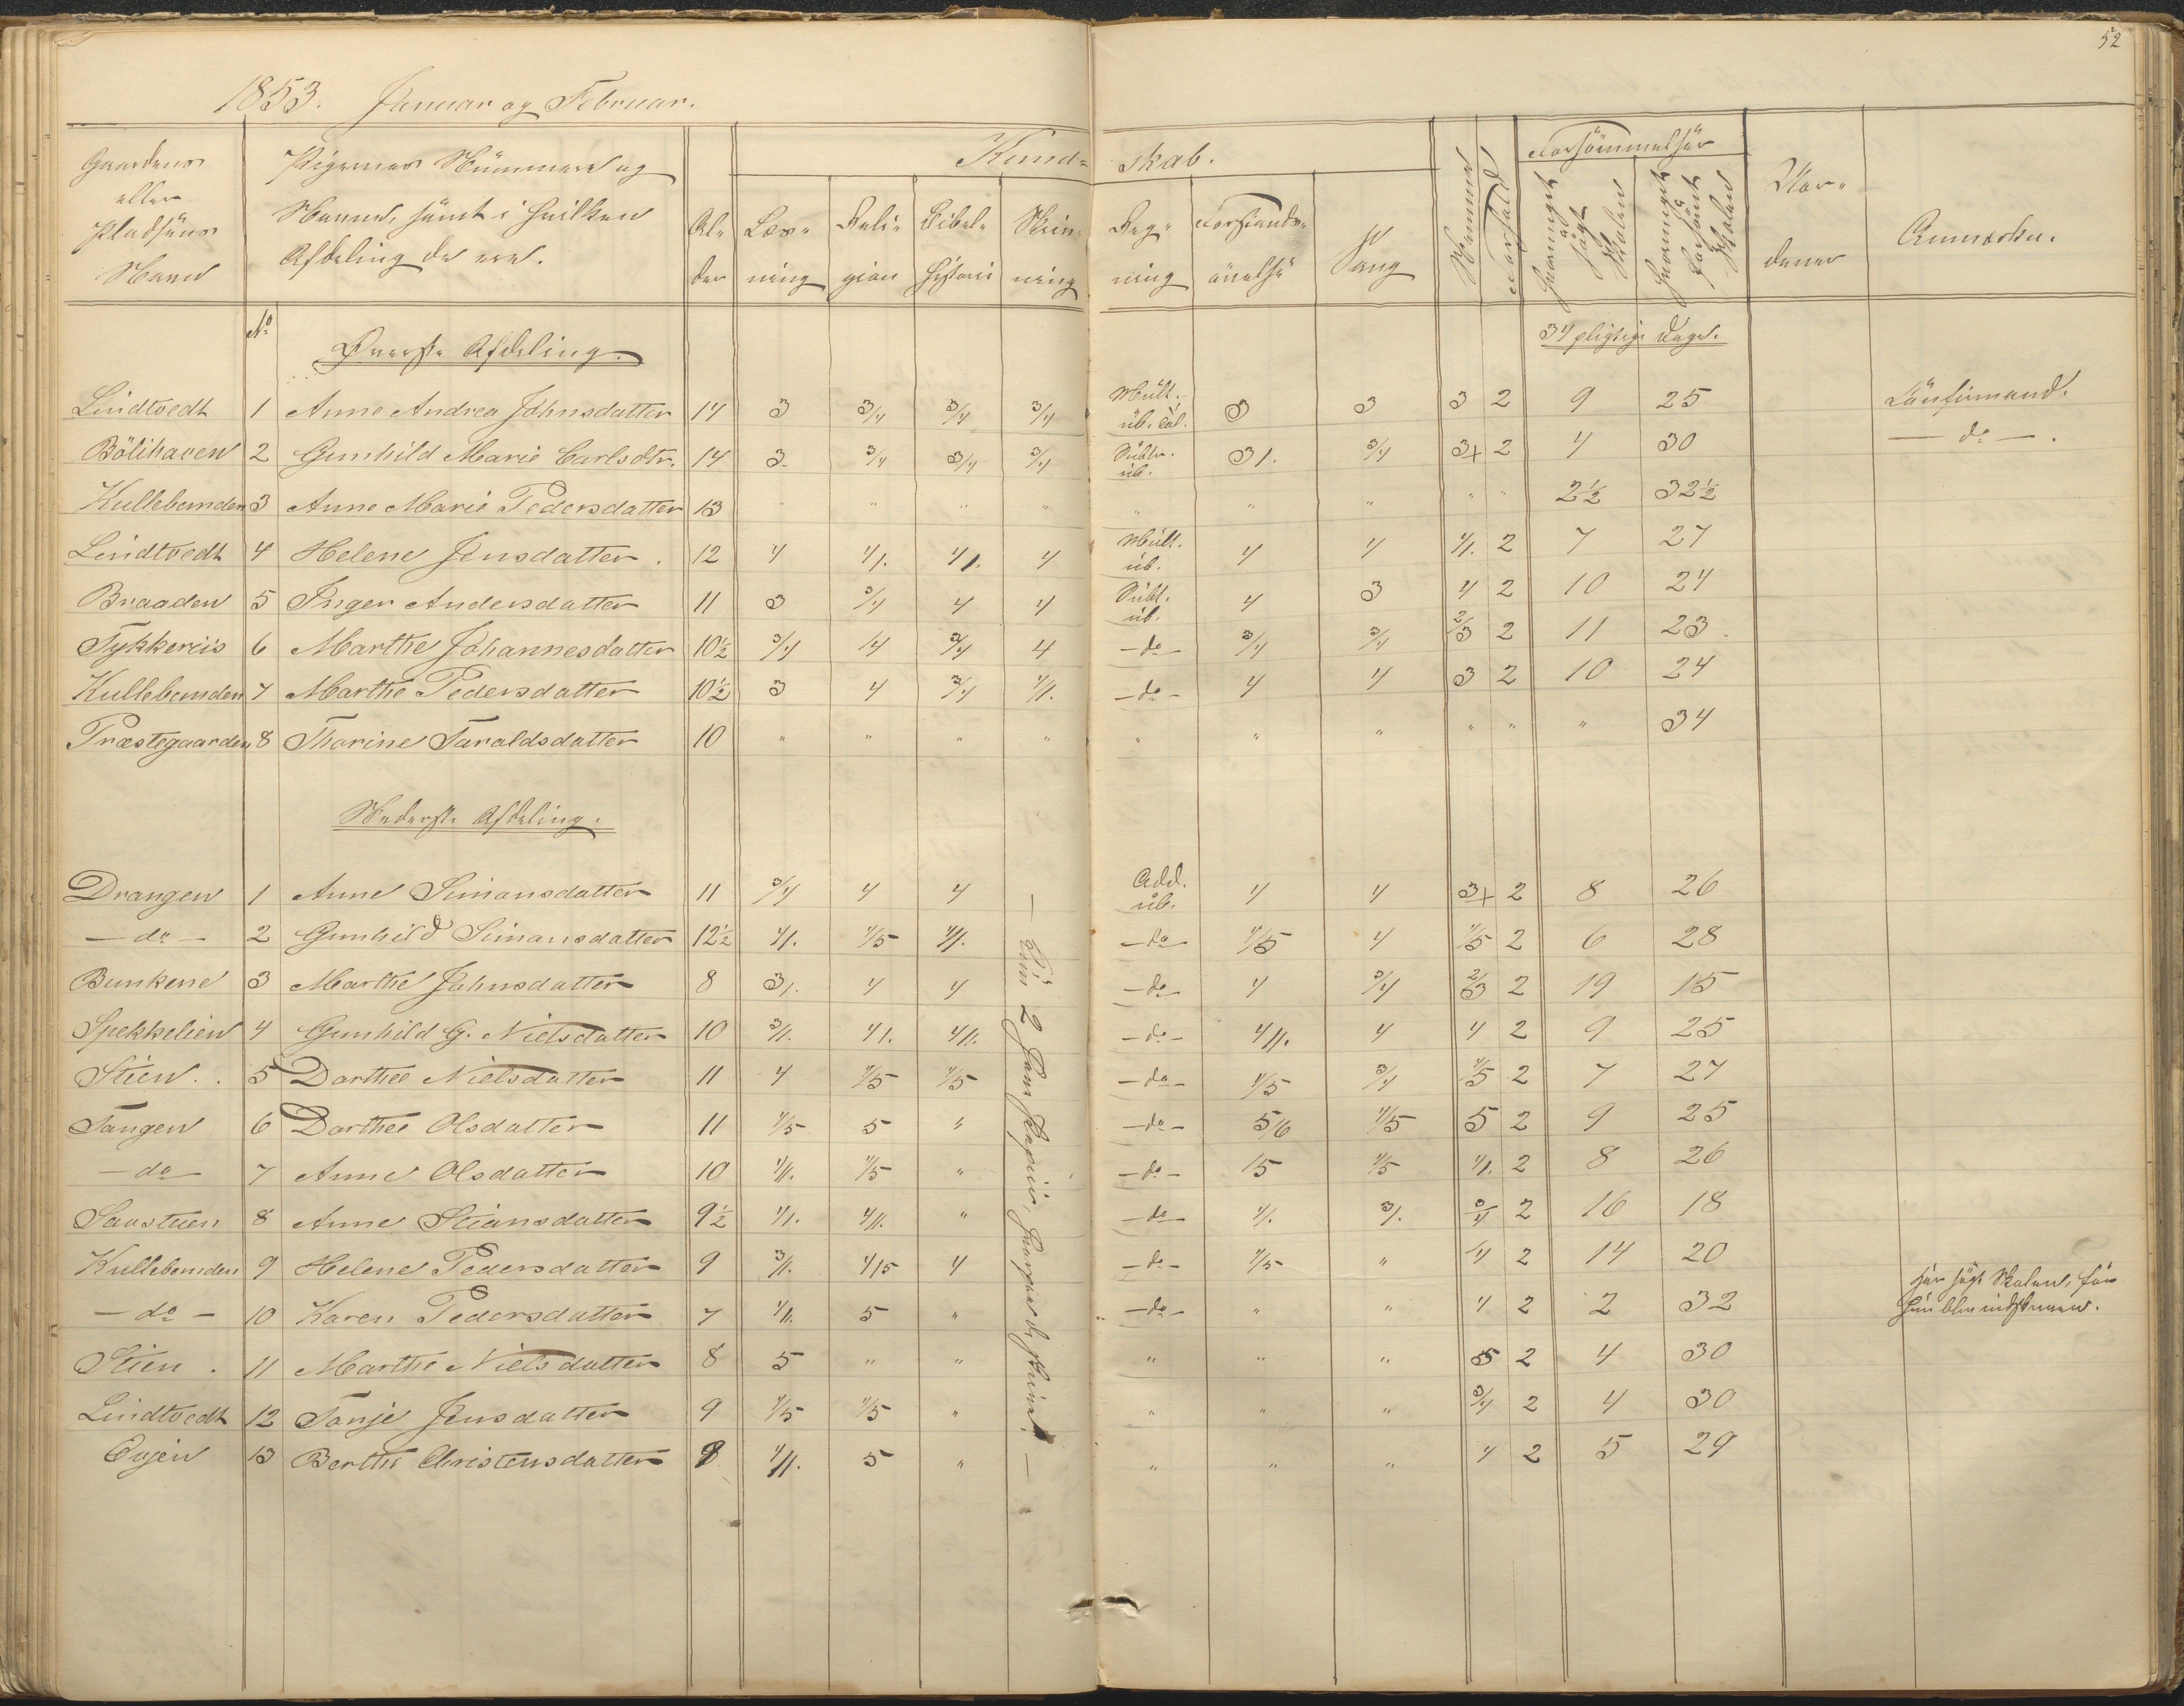 52
1853. Januar og Februar.
Gaardens eller Pladsens Navn | Pigernes Nummere og Navne, samt i hvilken Afdeling de ere. | Alder | Kundskab. | Forsømmelser | Anmærkn.
Læsning | Religion | Bibelhistorie | Skrivning | Regning | Forstandsøvelse | Sang | Nemme | Forhold | Hvormeget søgt Skolen | Hvormeget forsømt Skolen
No Øverste Afdeling. 34 pligtige Dage.
Lindtvedt 1 Anne Andrea Johnsdatter 14 3 3/4 3/4 3/4 Mult. 3 3 3 2 9 25
Bölihaven 2 Gunhild Marie Carlsdtr. 14 3 3/4 3/4 3/4 Subtr. üb. 3/. 3/4 3+ 2 4 30 – do –.
Kullebunden 3 Anne Marie Pedersdatter 13 " " " " " " " " " 2½ 32½
Lindtvedt 4 Helene Jensdatter. 12 4 4/. 4/. 4 Mult. üb. 4 4 4/. 2 7 27
Braaden 5 Inger Andersdatter 11 3 3/4 4 4 Subt. üb. 4 3 4 2 10 24
Tykkereis 6 Marthe Johannesdatter 10½ 3/4 4 3/4 4 – do – 3/4 3/4 2/3 2 11 23.
Kullebunden 7 Marthe Pedersdatter 10½ 3 4 3/4 4/. – do – 4 4 3 2 10 24
Præstegaarden 8 Thorine Taraldsdatter 10 " " " " " " " " " " 34
Nederste Afdeling.
Drangen 1 Anne Simonsdatter 11 3/4 4 4 Add. üb. 4 4 3+ 2 8 26
– do – 2 Gunhild Simonsdatter 12½ 4/. 4/5 4/. – do – 4/5 4 4/5 2 6 28
Bunkene 3 Marthe Johnsdatter 8 3/. 4 4 – do – 4 3/4 2/3 2 19 15
Spekkelien 4 Gunhild G. Nielsdatter 10 3/. 4/. 4//. – do – 4//. 4 4 2 9 25
Stien.. 5 Dorthee Nielsdatter 11 4 4/5 4/5 – do – 4/5 3/4 4/5 2 7 27
Tangen 6 Dorthee Olsdatter 11 4/5 5 " – do – 5/6 4/5 5 2 9 25
– do – 7 Anne Olsdatter 10 4/. 4/5 " – do – 15 4/5 4/. 2 8 26
8 Anne Stiansdatter 9½ 4/. 4//. " – do – 4/. 3/. 3/4 2 16 18
Kullebunden 9 Helene Pedersdatter 9 3/. 4/5 4 – do – 4/5 " 4 2 14 20
– do – 10 Karen Pedersdatter 7 4/. 5 " – do – " " 4 2 2 32 har søgt Skolen, før hun blev indskreven.
Stien. 11 Marthe Nielsdatter 8 5 " " " " " 5 2 4 30
Lindtvedt 12 Tonje Jensdatter 9 4/5 4/5 " " " " 3/4 2 4 30
13 Berthe Christensdatter 8 4//. 5 " " " " 4 2 5 29